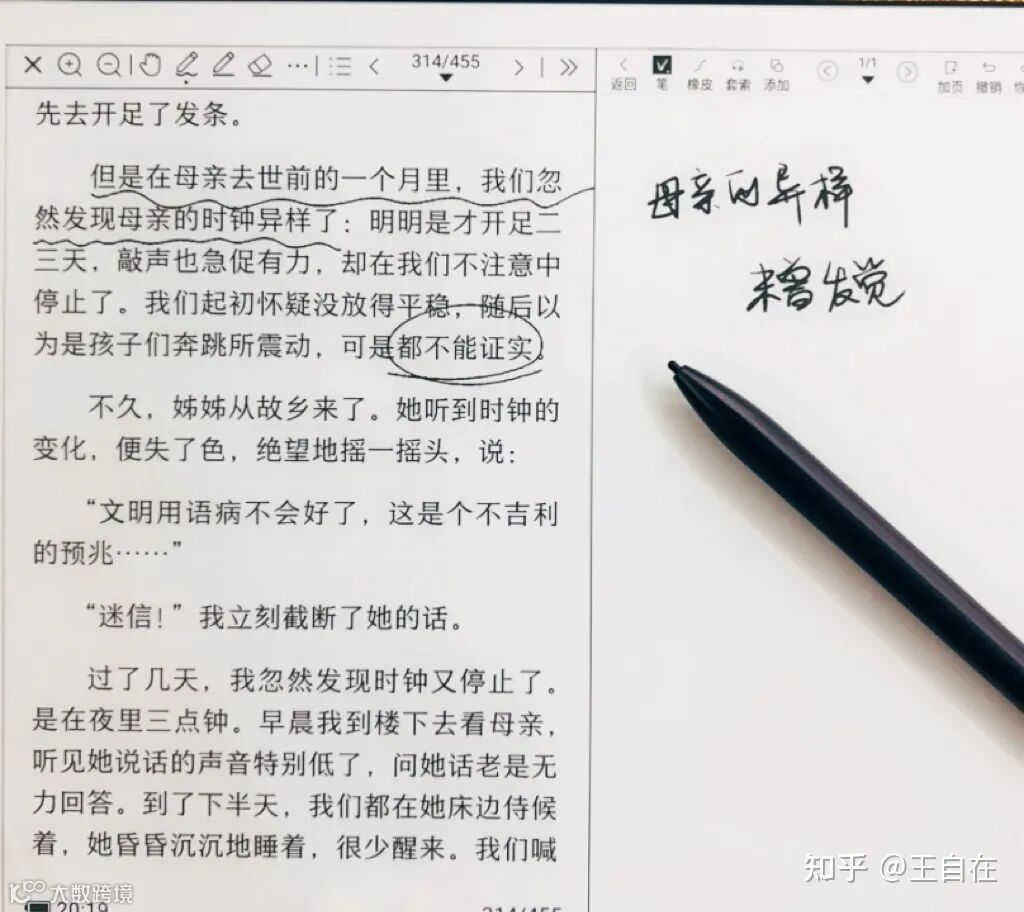 314/455
先去开足了发条。
但是在母亲去世前的一个月里，我们忽
然发现母亲的时钟异样了：明明是才开足二
三天，敲声也急促有力，却在我们不注意中
停止了。我们起初怀疑没放得平稳，随后以
为是孩子们奔跳所震动，可是都不能证实。
不久，姊姊从故乡来了。她听到时钟的
变化，便失了色，绝望地摇一摇头，说：
“文明用语病不会好了，这是个不吉利
的预兆……”
“迷信！”我立刻截断了她的话。
过了几天，我忽然发现时钟又停止了。
是在夜里三点钟。早晨我到楼下去看母亲，
听见她说话的声音特别低了，问她话老是无
力回答。到了下半天，我们都在她床边侍候
着，她昏昏沉沉地睡着，很少醒来。我们喊
20:19
314/455
返回 笔 橡皮 套索 添加 1/1 加页 撤销
母亲的异样
未曾发觉
知乎 @王自在
大数跨境